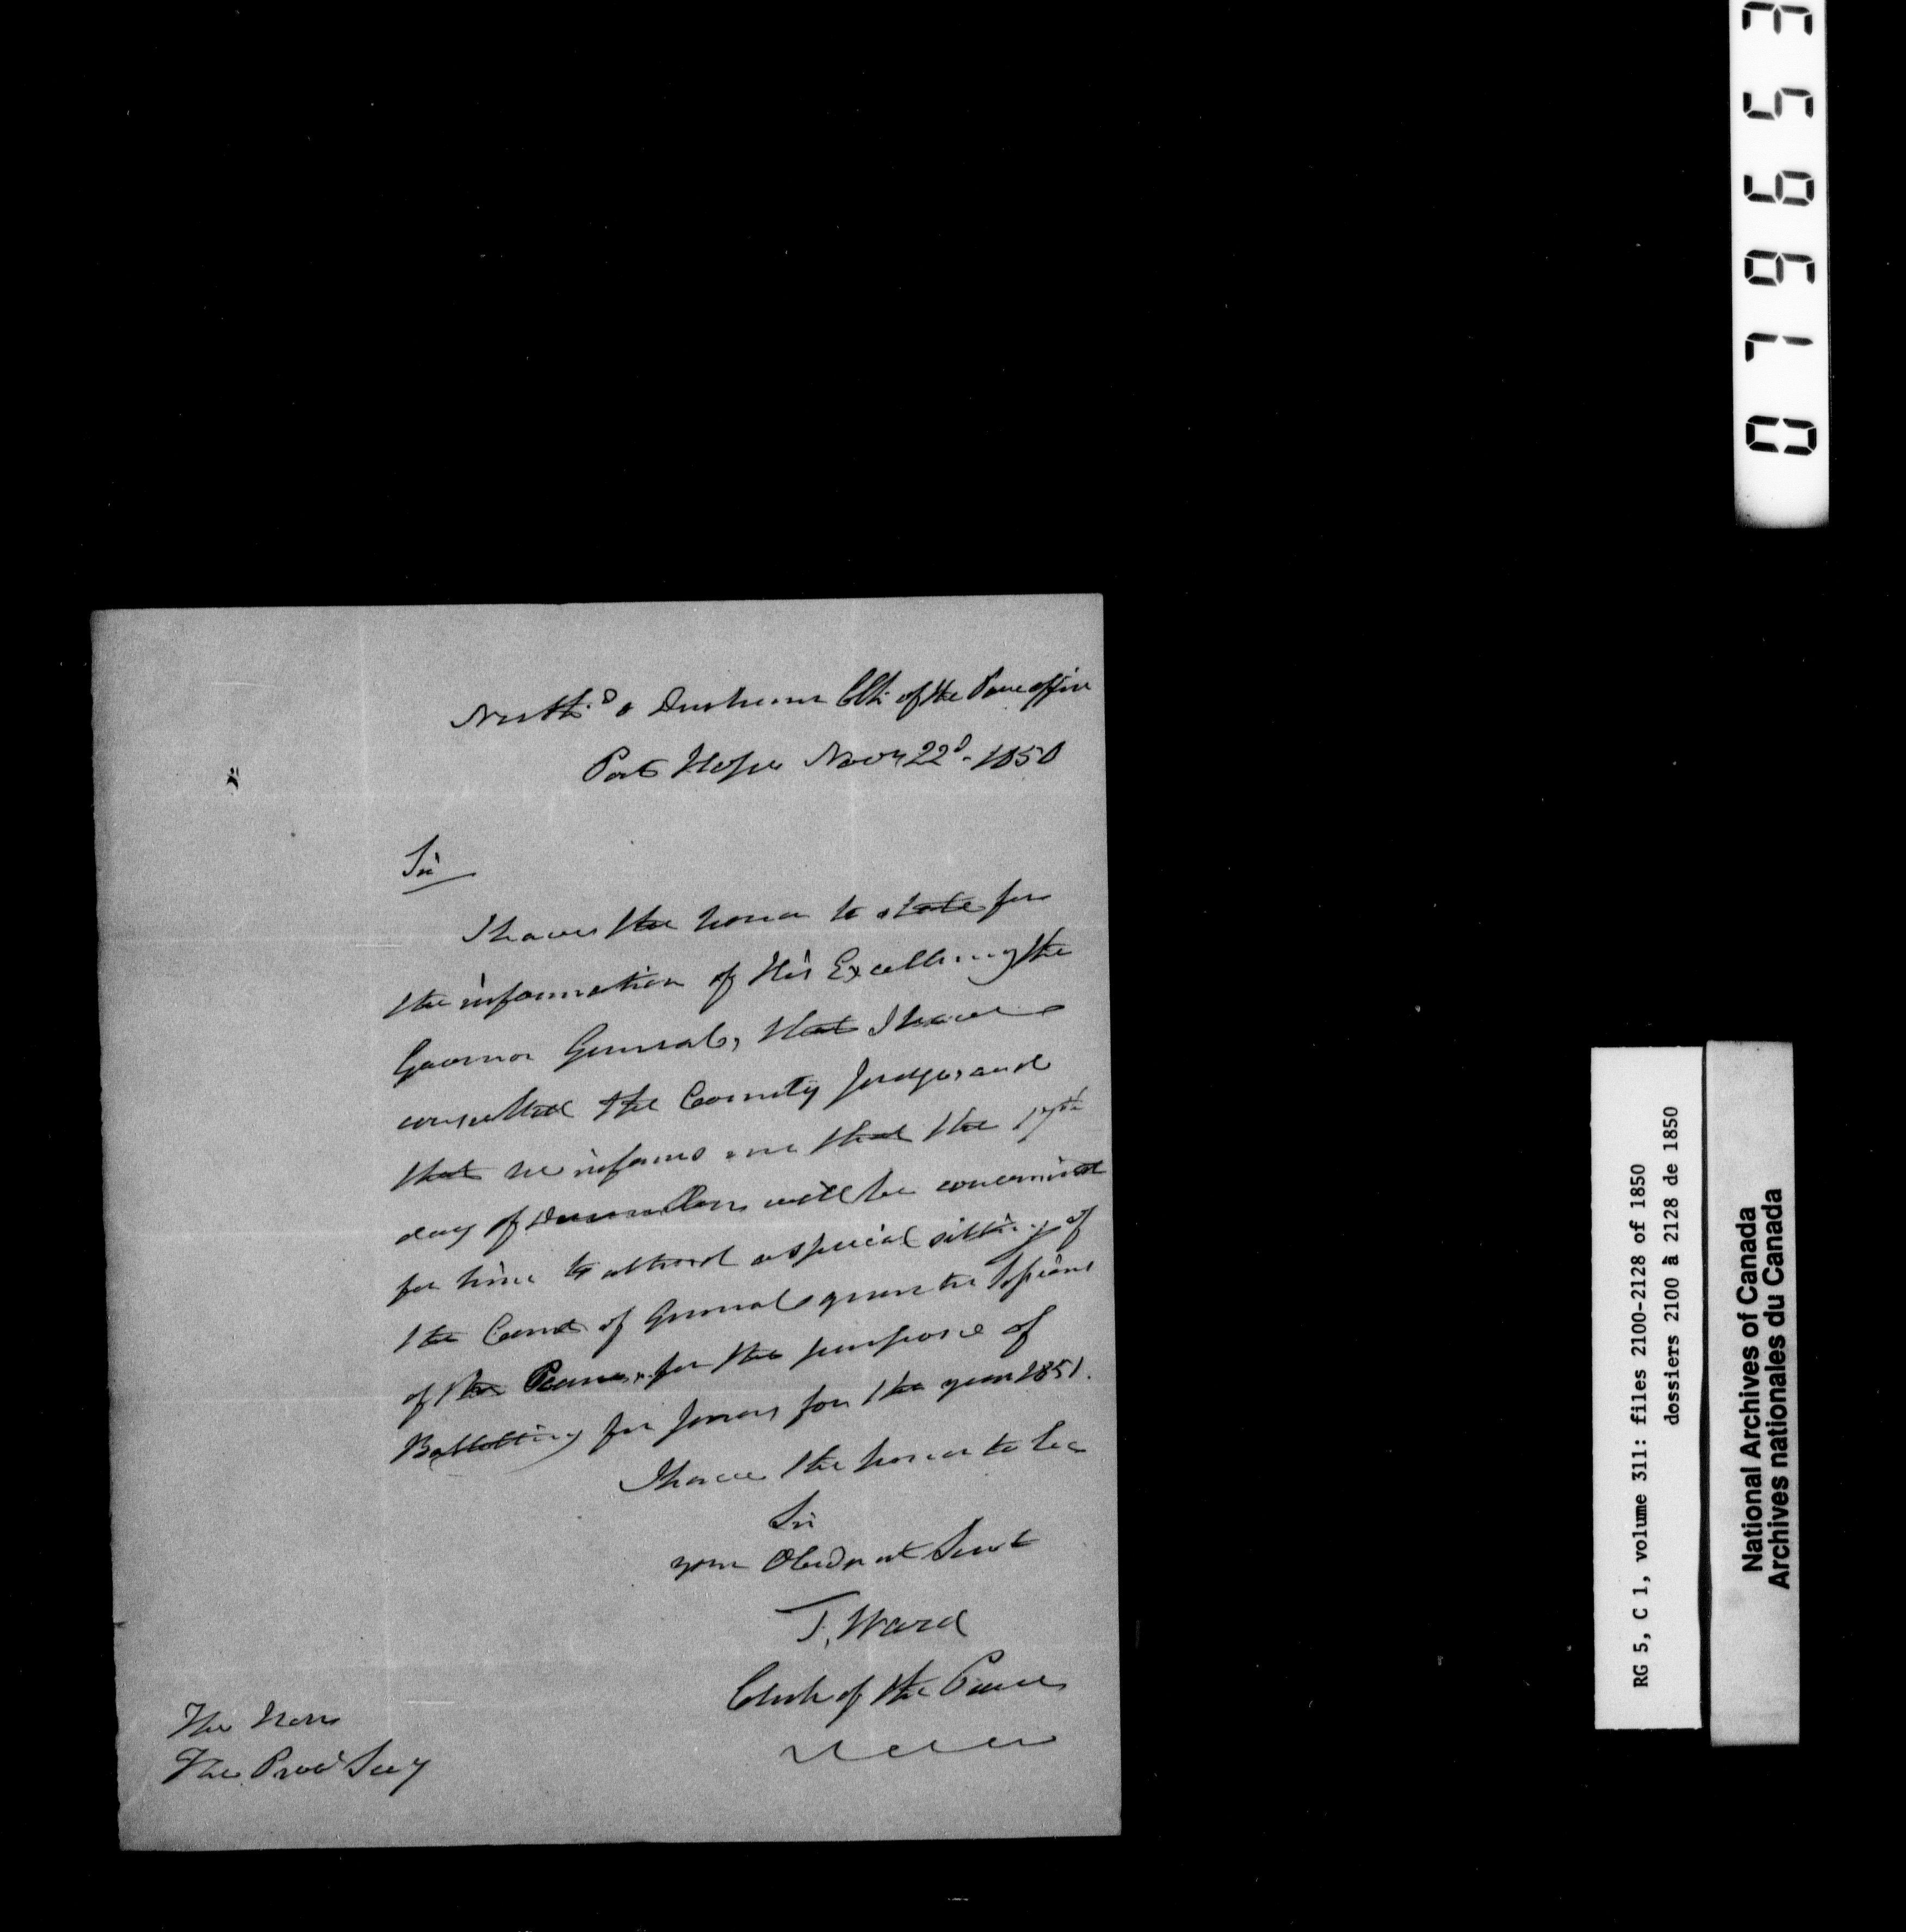 North.d & Durham Clk of the Peace office
Port Hope Novr 22d. 1850
Sir
I have the honor to state for
the information of His Excellency the
Governor General, that I have
consulted the County Judge, and
that he informs me that the 17th
day of December will be convenient
for him to attend a special sitting of
the Court of General quarter Sessions
of the Peace, for the purpose of
Ballotting for Jurors for the year 1851.
I have the honor to be
Sir
your Obedient Servt
T. Ward
Clerk of the Peace
The Hon
The Prov'l Secy
079653
RG 5, C 1, volume 311: files 2100-2128 of 1850
dossiers 2100 à 2128 de 1850
National Archives of Canada
Archives nationales du Canada